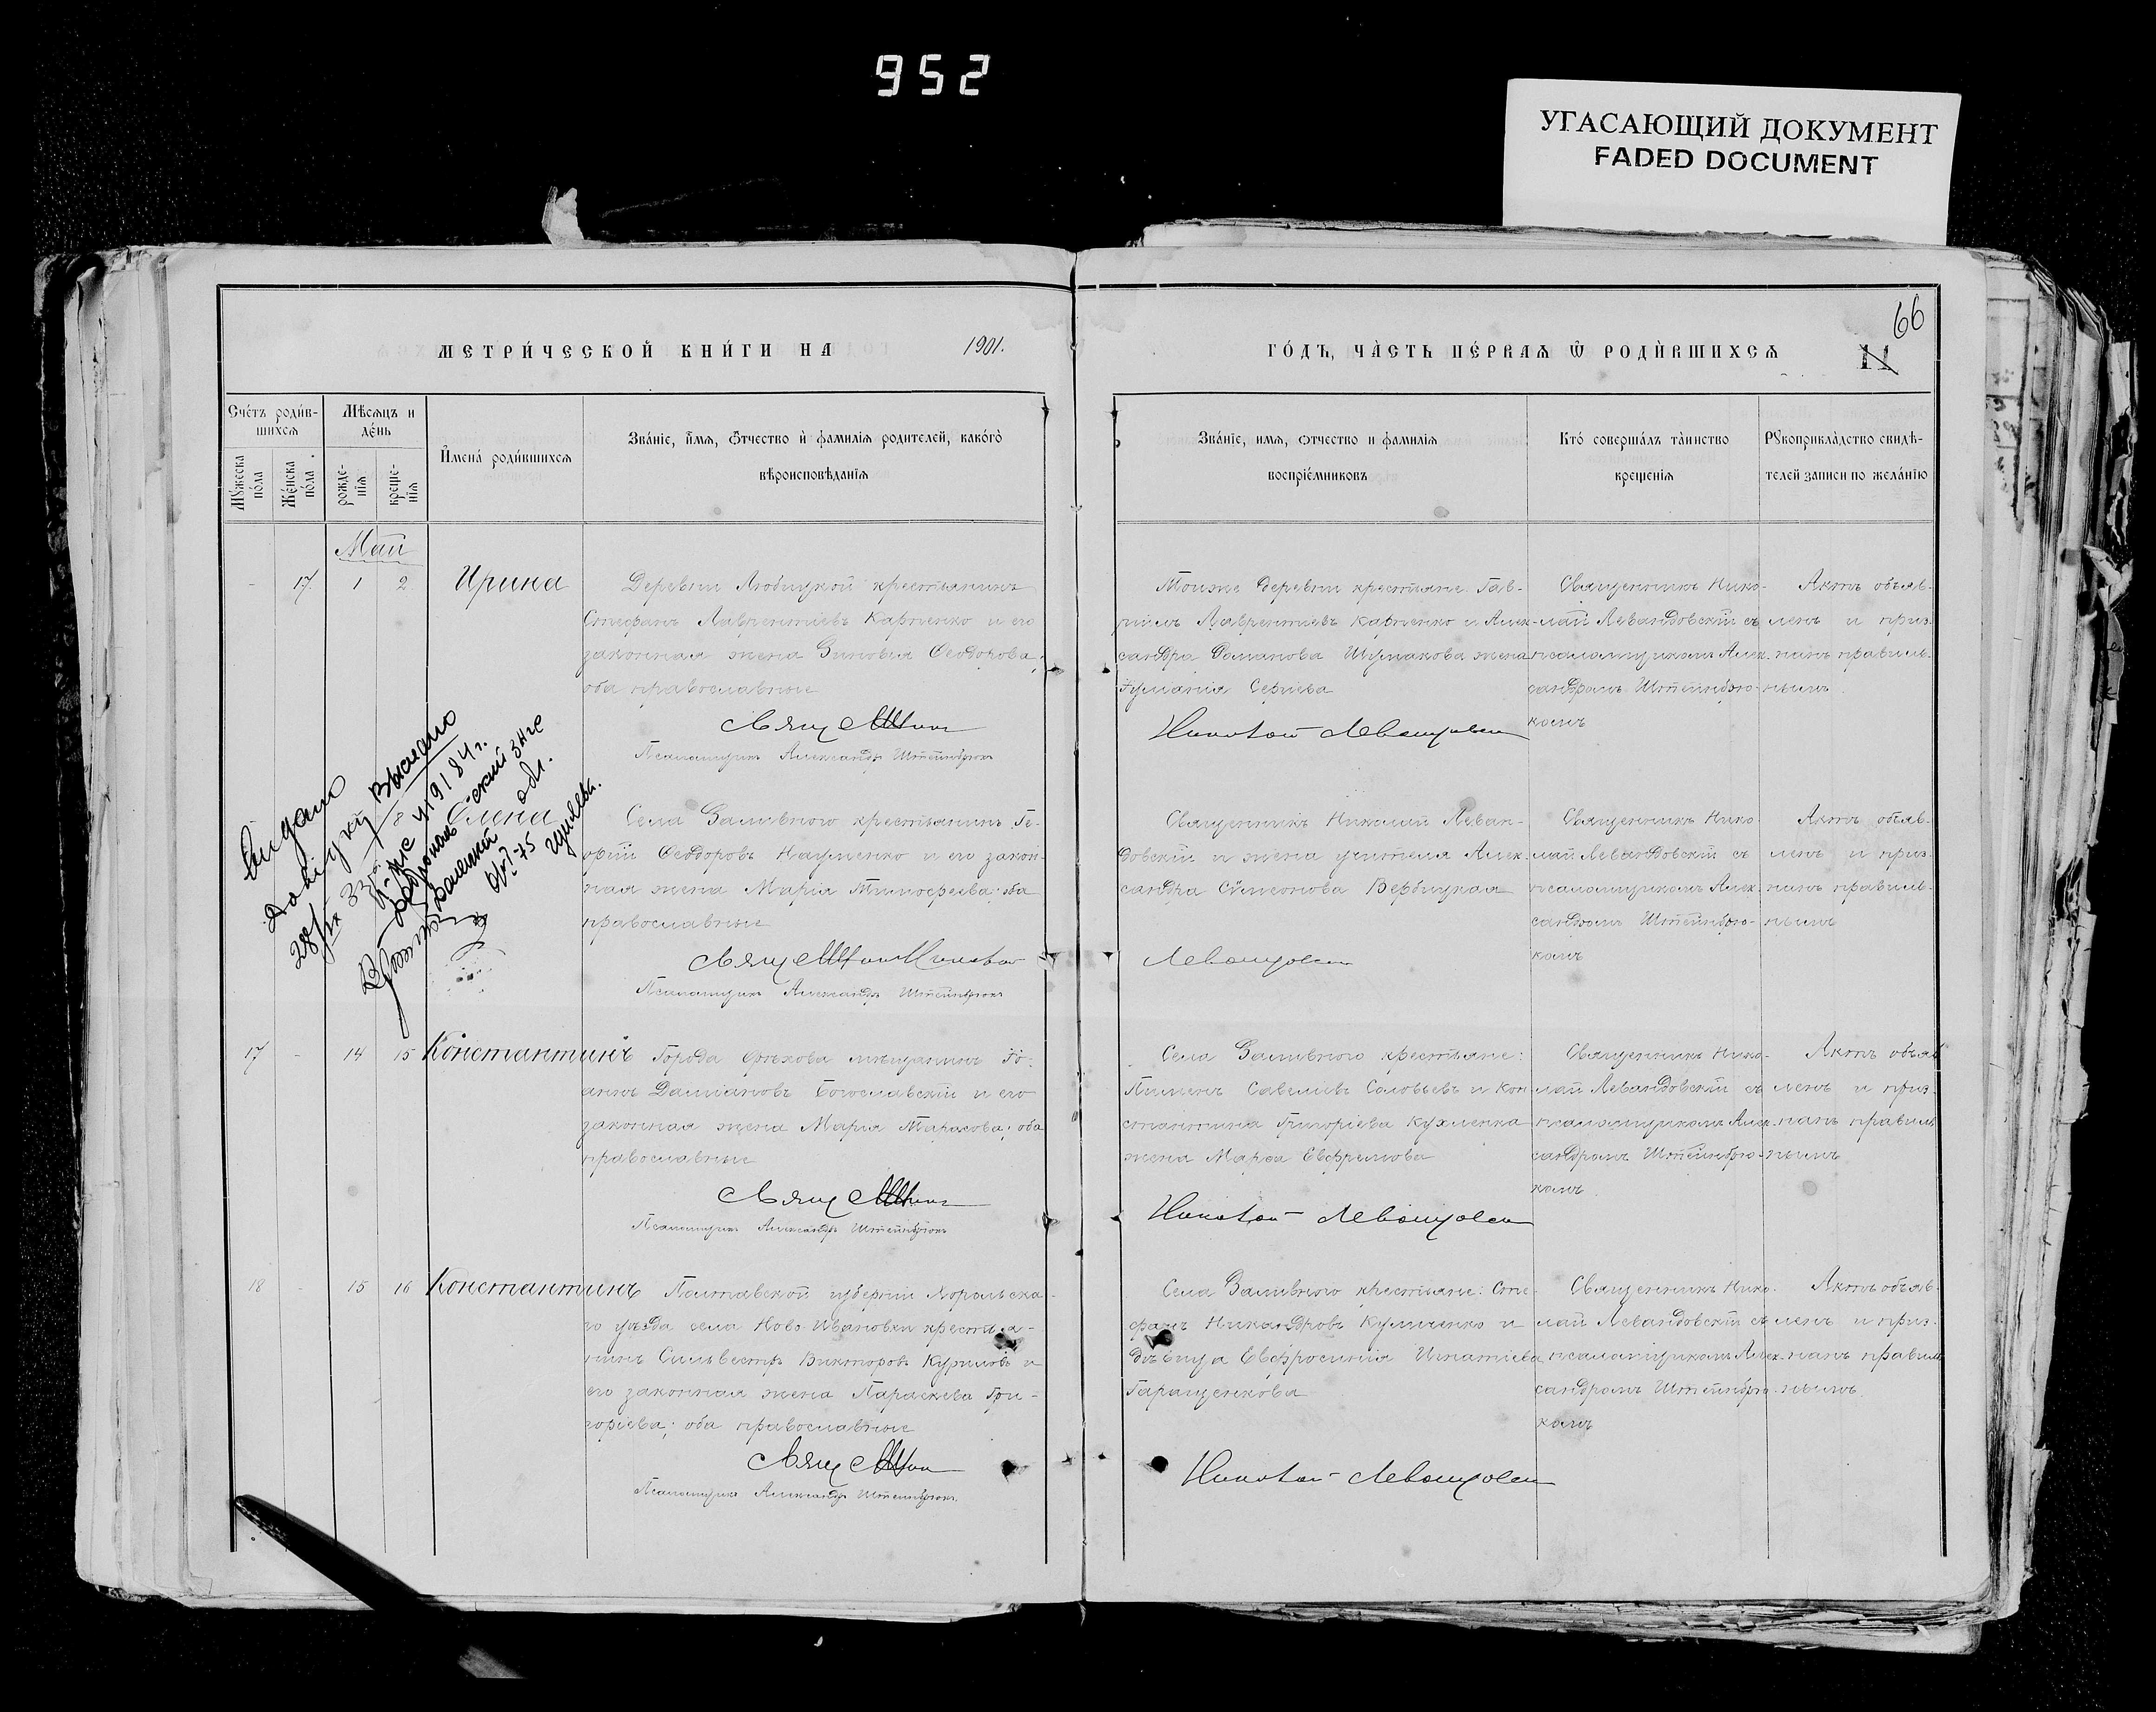 952
УГАСАЮЩИЙ ДОКУМЕНТ
FADED DOCUMENT
66
МЕТРИ́ЧЕСКОЙ КНИ́ГИ НА 1901.
ГО́ДЪ, ЧА̀СТЬ ПЕ́РВАѦ Ѿ РОДИ́ВШИХСѦ 11
Сче́тъ роди́в-
шихсѧ
Мѣ́сѧцъ и
де́нь
Мꙋ́жеска
по́ла
Же́нска
по́ла
рожде-
нїѧ
креще-
нїѧ
И҆мена̀ роди́вшихсѧ
Зва́нїе, и҆́мѧ, ѻ҆́тчество и҆ фами́лїѧ роди́телей, како́гѡ
вѣроисповѣ́данїѧ
Зва́нїе, имѧ, ѻтчество и фами́лїѧ
воспрїе́мниковъ
Кто̀ соверша́лъ та́инство
креще́нїѧ
Рꙋкоприкла́дство свидѣ́-
телей записи по жела́нїю
Май
- 17. 1 2 Ирина
Деревни Любицкой крестьянинъ
Стефанъ Лаврентіевъ Карпенко и его
законная жена Зиновія Ѳеодорова;
оба православные
Псаломщикъ Александръ Штейнбрюкъ
Тоиже деревни крестьяне: Гав-
ріилъ Лаврентіевъ Карпенко и Алек-
сандра Романова Шумакова жена
Сергіева
Николай Левандовскій
Священникъ Нико-
лай Левандовскій съ
псаломщикомъ Алек-
сандромъ Штейнбрю-
комъ
Актъ объяв-
ленъ и приз-
нанъ правиль-
нымъ.
Выдано
довідку
28/ІХ 33 р.
Выслано
8 Елена
Села Заливного крестьянинъ Ге-
оргій Ѳеодоровъ Науменко и его закон-
ная жена Марія Тимофеева; оба
православные
Псаломщикъ Александръ Штейнбрюкъ
Священникъ Николай Леван-
довскій и жена учителя Алек-
сандра Сѵмеонова Вербицкая
Левандовскій
Священникъ Нико-
лай Левандовскій съ
псаломщикомъ Алек-
сандромъ Штейнбрю-
комъ
Актъ объяв-
ленъ и приз-
нанъ правиль-
нымъ
17 - 14 15 Константинъ
Города Орѣхова мѣщанинъ Іо-
аннъ Даміановъ Богославскій и его
законная жена Марія Тарасова; оба
православные
Псаломщикъ Александръ Штейнбрюкъ
Села Заливного крестьяне:
Пименъ Савеліевъ Соловьевъ и Кон-
стантина Григоріева Кухленка
жена Марѳа Евфремова
Николай Левандовскій
Священникъ Нико-
лай Левандовскій съ
псаломщикомъ Алек-
сандромъ Штейнбрю-
комъ.
Актъ объяв-
ленъ и приз-
нанъ правиль-
нымъ
18 - 15 16 Константинъ
Полтавской губерніи Хорольска-
го уѣзда села Ново-Ивановки крестья-
нинъ Сильвестръ Викторовъ Куриловъ и
его законная жена Параскева Гри-
горіева; оба православные
Псаломщикъ Александръ Штейнбрюкъ.
Села Заливного крестьяне: Сте-
фанъ Никандровъ Куличенко и
дѣвица Евфросинія Игнатіева
Геращенкова
Николай Левандовскій
Священникъ Нико-
лай Левандовскій съ
псаломщикомъ Алек-
сандромъ Штейнбрю-
комъ
Актъ объяв-
ленъ и приз-
нанъ правиль-
нымъ.